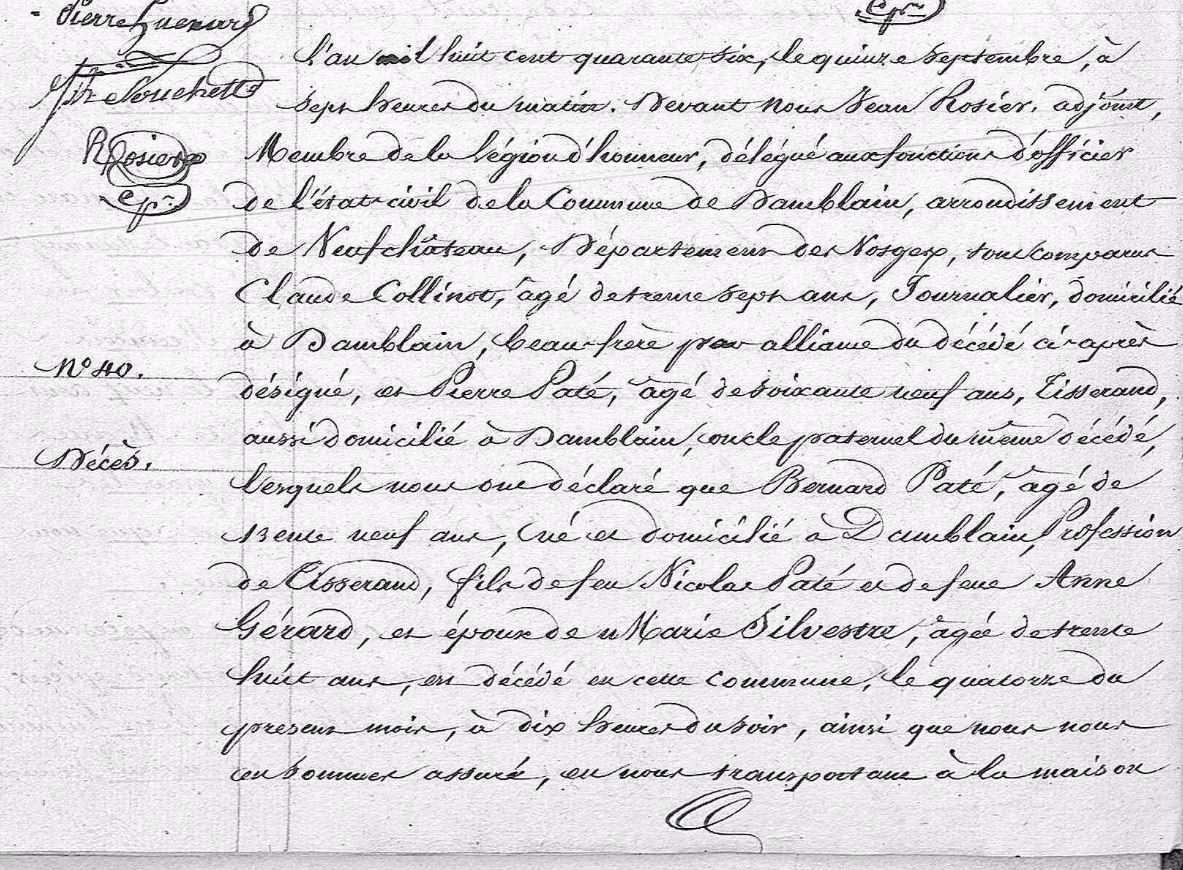 Pierre Guenard
Souchette
Rosier
L'an mil huit cent quarante six, le quinze Septembre, à
sept heures du matin. Devant nous Jean Rosier, adjoint,
Membre de la légion d'honneur, délégué aux fonctions d'officier
de l'état-civil de la Commune de Damblain, arrondissement
de Neufchâteau, Département des Vosges, sont comparus
Claude Collinot, âgé de trente sept ans, Journalier, domicilié
à Damblain, beau-frère par alliance du décédé ci-après
N° 40.
désigné, et Pierre Paté, âgé de soixante neuf ans, Tisserand,
aussi domicilié à Damblain, oncle paternel du même décédé,
Décès.
lesquels nous ont déclaré que Bernard Paté, âgé de
trente neuf ans, né et domicilié à Damblain, Profession
de Tisserand, fils de feu Nicolas Paté et de feue Anne
Gérard, et époux de Marie Silvestre, âgée de trente
huit ans, est décédé en cette commune, le quatorze du
présent mois, à dix heures du soir, ainsi que nous nous
en sommes assuré, en nous transportant à la maison